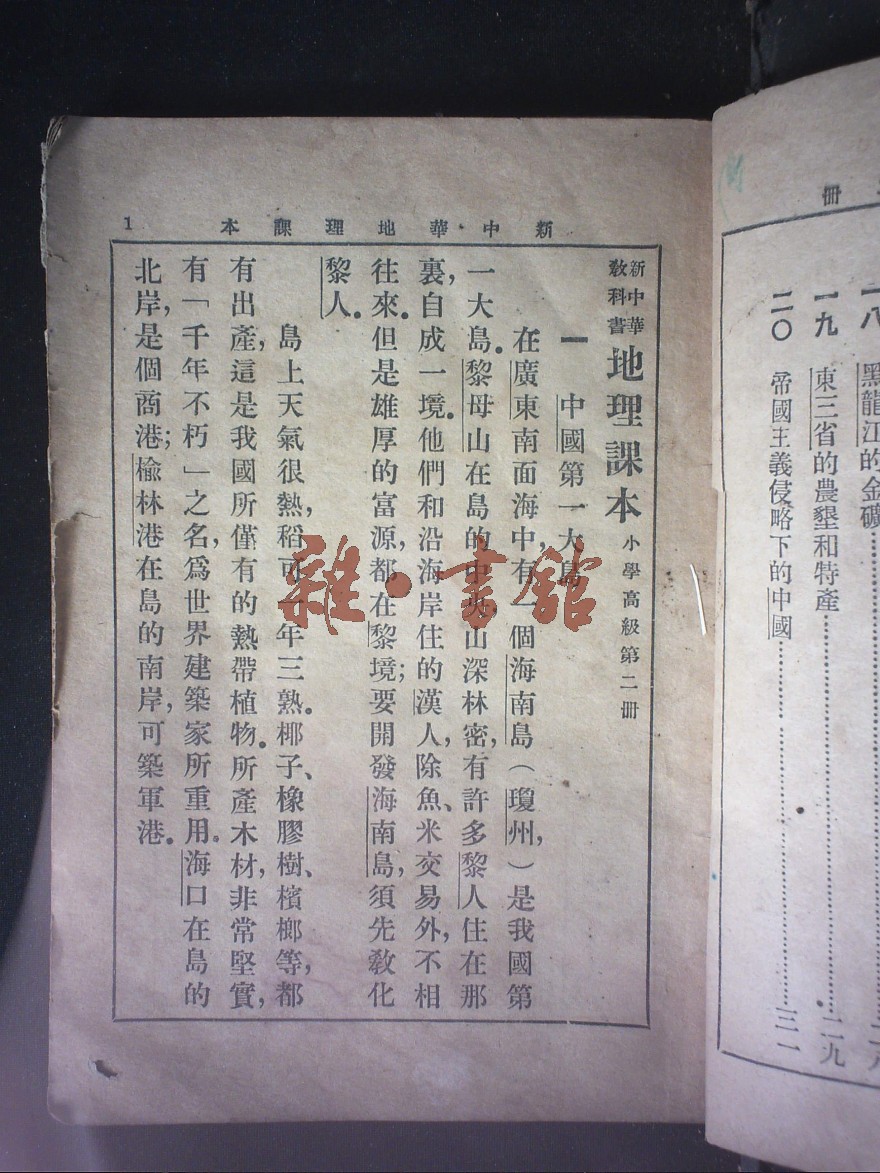 冊
一八 黑龍江的金礦……二八
一九 東三省的農墾和特產……二九
二〇 帝國主義侵略下的中國……三一
新中華地理課本 1
新中華教科書 地理課本 小學高級第二冊
一 中國第一大島
在廣東南面海中,有一個海南島(瓊州,)是我國第
一大島。黎母山在島的中央,山深林密,有許多黎人住在那
裏,自成一境。他們和沿海岸住的漢人,除魚、米交易外,不相
往來。但是雄厚的富源,都在黎境;要開發海南島,須先教化
黎人。
島上天氣很熱,稻可一年三熟。椰子、橡膠樹、檳榔等,都
有出產,這是我國所僅有的熱帶植物。所產木材,非常堅實,
有「千年不朽」之名,爲世界建築家所重用。海口在島的
北岸,是個商港;榆林港在島的南岸,可築軍港。
雜·書館